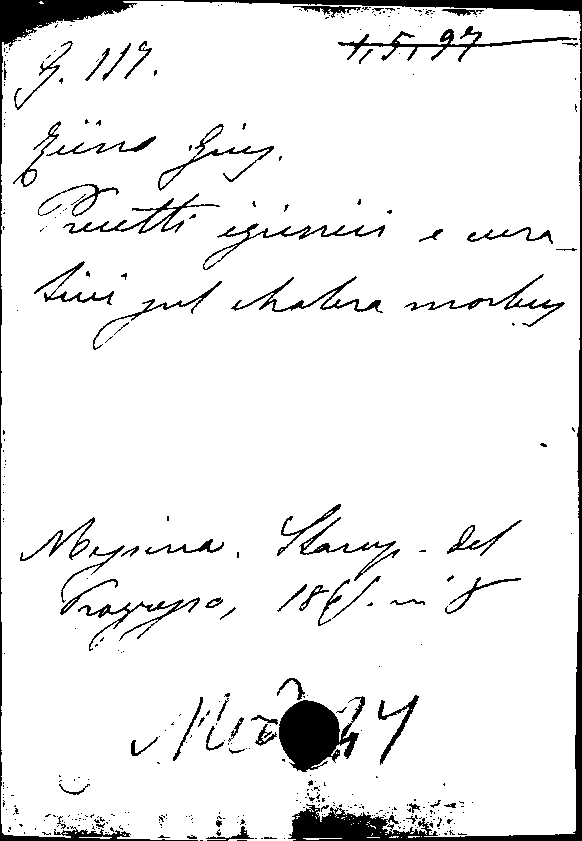 G. 117. 1, 5, 97
Ziino Giu.
Precetti igienici e cura-
tivi sul cholera morbus
Messina. Stamp. del
Progresso, 1865. in 8
Med 24